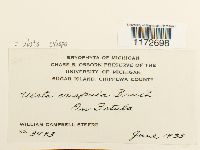 1172698
BRYOPHYTA OF MICHIGAN
CHASE S. OSBORN PRESERVE OF THE
UNIVERSITY OF MICHIGAN
SUGAR ISLAND, CHIPPEWA COUNTY
Ulota crispula Bruch
On Betula
WILLIAM CAMPBELL STEERE
NO. June, 1935